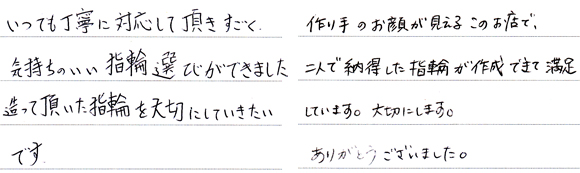 いつも丁寧に対応して頂きすごく、
気持ちのいい指輪選びができました
造って頂いた指輪を大切にしていきたい
です
作り手のお顔が見えるこのお店で、
二人で納得した指輪が作成できて満足
しています。大切にします。
ありがとうございました。